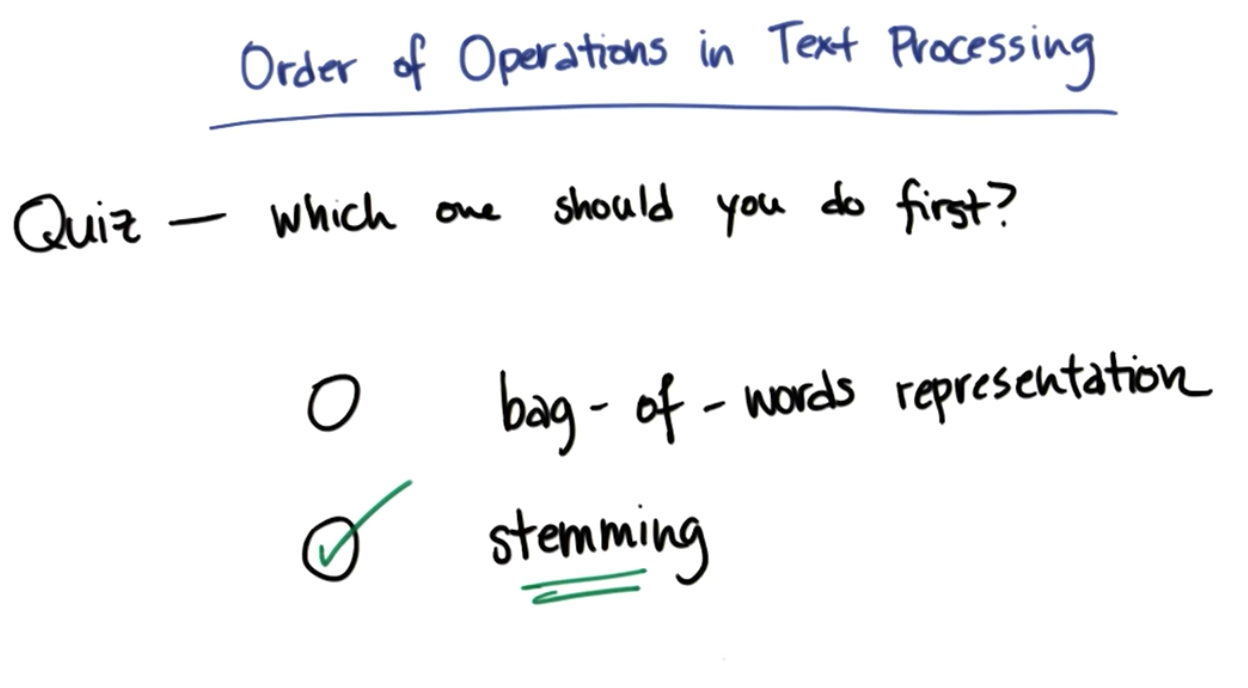 Order of Operations in Text Processing
Quiz — which one should you do first?
bag-of-words representation
stemming